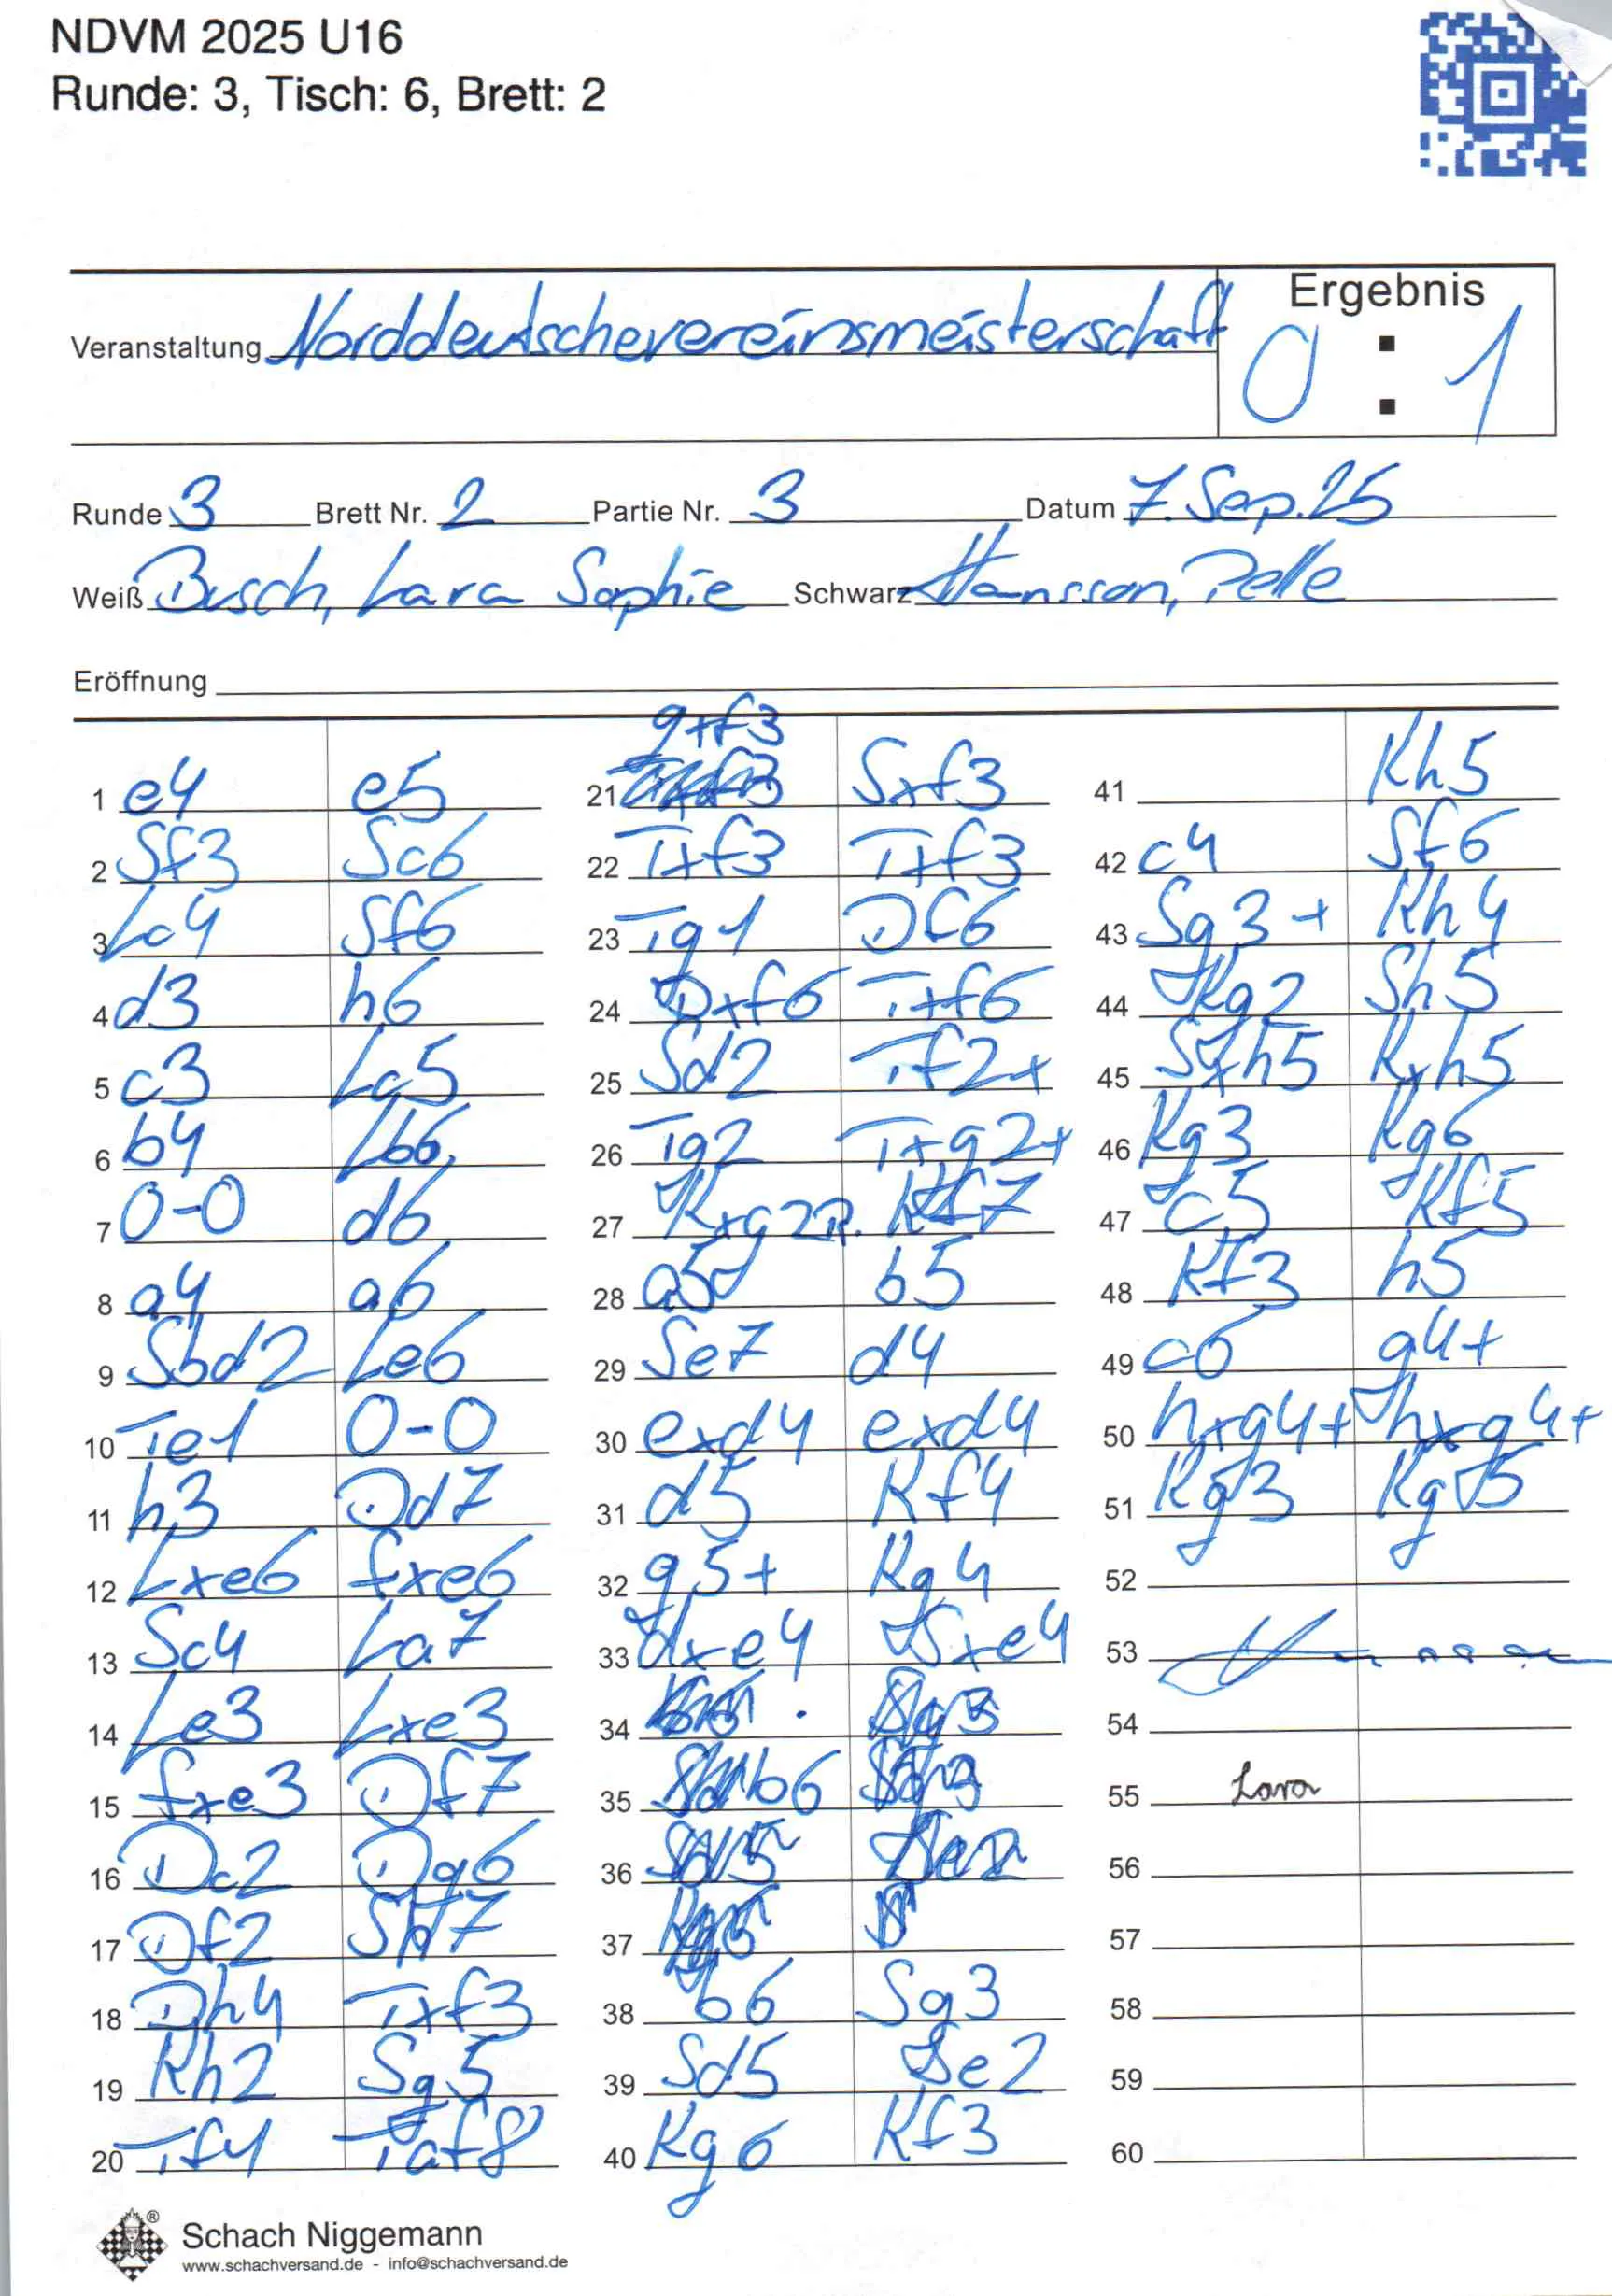 NDVM 2025 U16
Runde: 3, Tisch: 6, Brett: 2
Ergebnis
Veranstaltung Norddeutschevereinsmeisterschaft 0 : 1
Runde 3 Brett Nr. 2 Partie Nr. 3 Datum 7. Sep. 25
Weiß Busch, Lara Sophie Schwarz Hansson, Pelle
Eröffnung
1 e4 e5
2 Sf3 Sc6
3 Lc4 Sf6
4 d3 h6
5 c3 Lc5
6 b4 Lb6
7 0-0 d6
8 a4 a6
9 Sbd2 Le6
10 Te1 0-0
11 h3 Dd7
12 Lxe6 fxe6
13 Sc4 La7
14 Le3 Lxe3
15 fxe3 Df7
16 Dc2 Dg6
17 Df2 Sh7
18 Dh4 Txf3
19 Kh2 Sg5
20 Tf1 Taf8
gxf3
21 Sxf3
22 Txf3 Txf3
23 Tg1 Df6
24 Dxf6 Txf6
25 Sd2 Tf2+
26 Tg2 Txg2+
27 Kxg2 R. Kf7
28 a5 b5
29 Se7 d4
30 exd4 exd4
31 d5 Kf4
32 g5+ Kg4
33 dxe4 Sxe4
34
35 b6
36
37
38 b6 Sg3
39 Sd5 Se2
40 Kg6 Kf3
41 Kh5
42 c4 Sf6
43 Sg3+ Kh4
44 Kg2 Sh5
45 Sxh5 Kxh5
46 Kg3 Kg6
47 c5 Kf5
48 Kf3 h5
49 c6 g4+
50 hxg4+ hxg4+
51 Kg3 Kg5
52
53
54
55 Lara
56
57
58
59
60
® Schach Niggemann
www.schachversand.de - info@schachversand.de